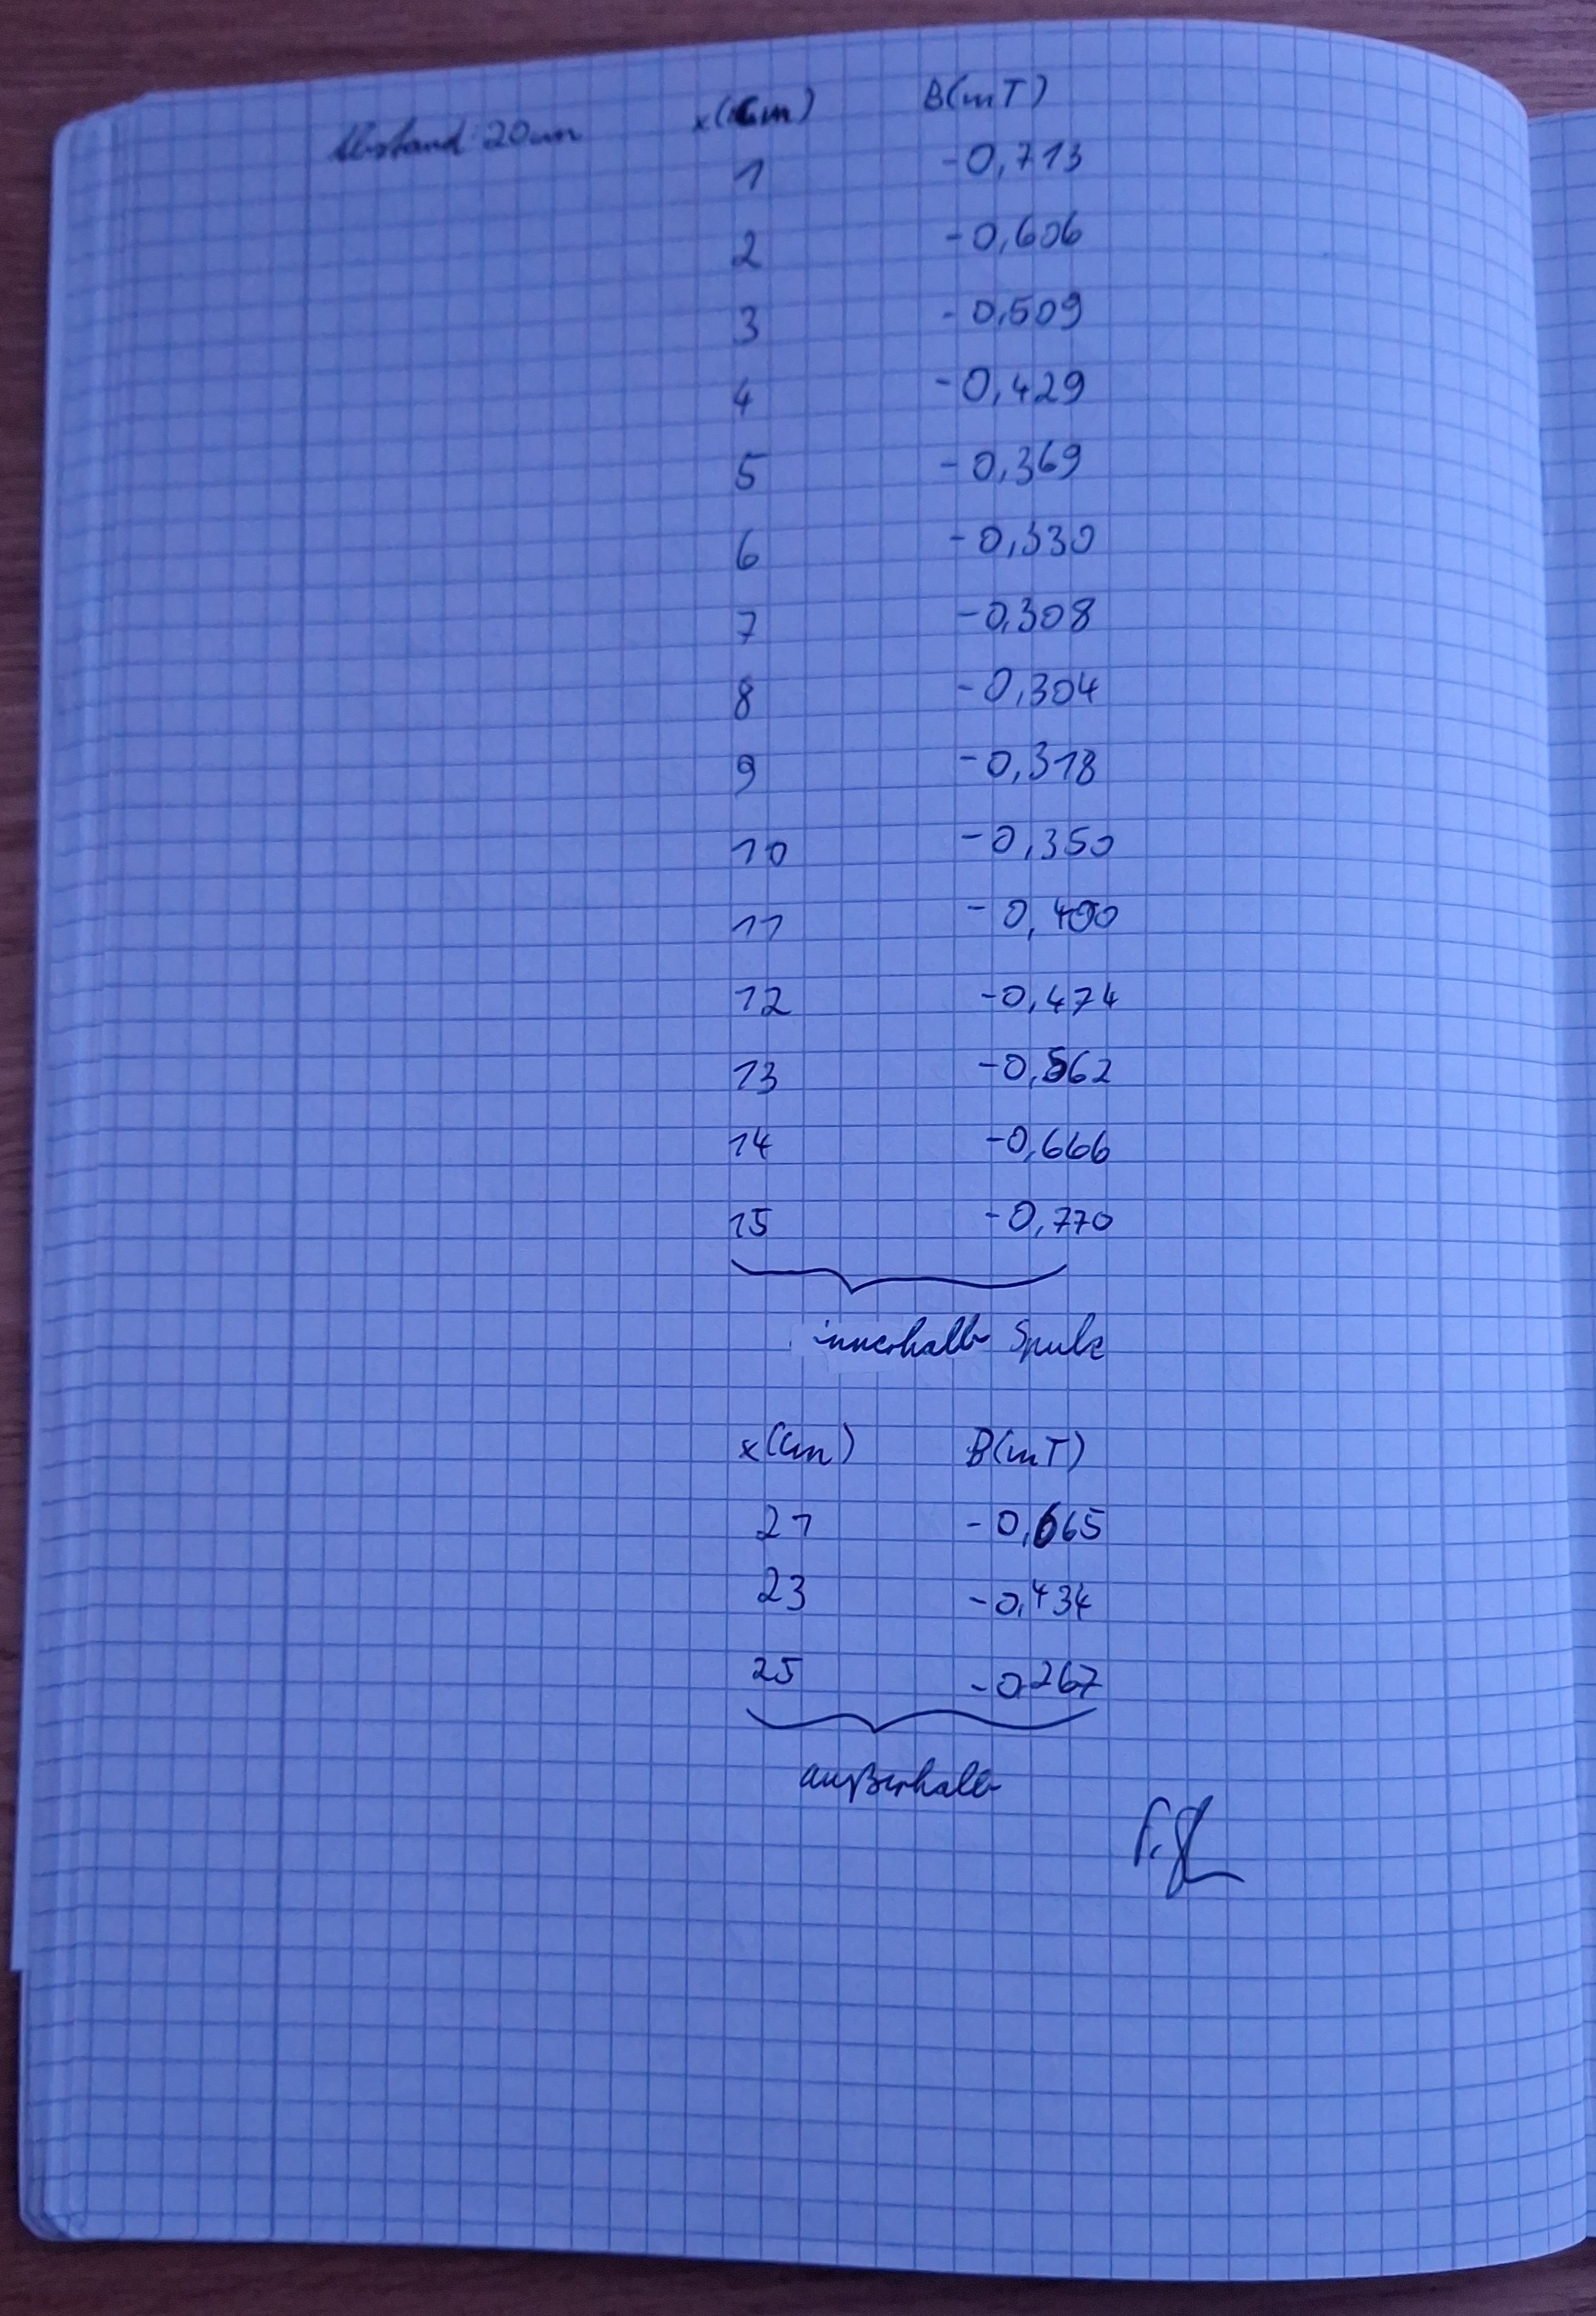 Abstand 20cm x(cm) B(mT)
1 -0,713
2 -0,606
3 -0,509
4 -0,429
5 -0,369
6 -0,330
7 -0,308
8 -0,304
9 -0,318
10 -0,350
11 -0,400
12 -0,474
13 -0,562
14 -0,666
15 -0,770
innerhalb Spule
x(cm) B(mT)
21 -0,665
23 -0,434
25 -0,267
außerhalb